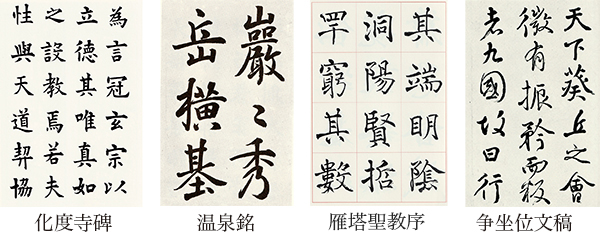 為言冠玄宗以
立德其唯真如
之設教焉若夫
性與天道契協
化度寺碑
巖〻秀
岳橫基
温泉銘
其端明陰
洞陽賢哲
罕窮其數
雁塔聖教序
天下葵丘之會
微有振矜而叛
者九國故曰行
争坐位文稿